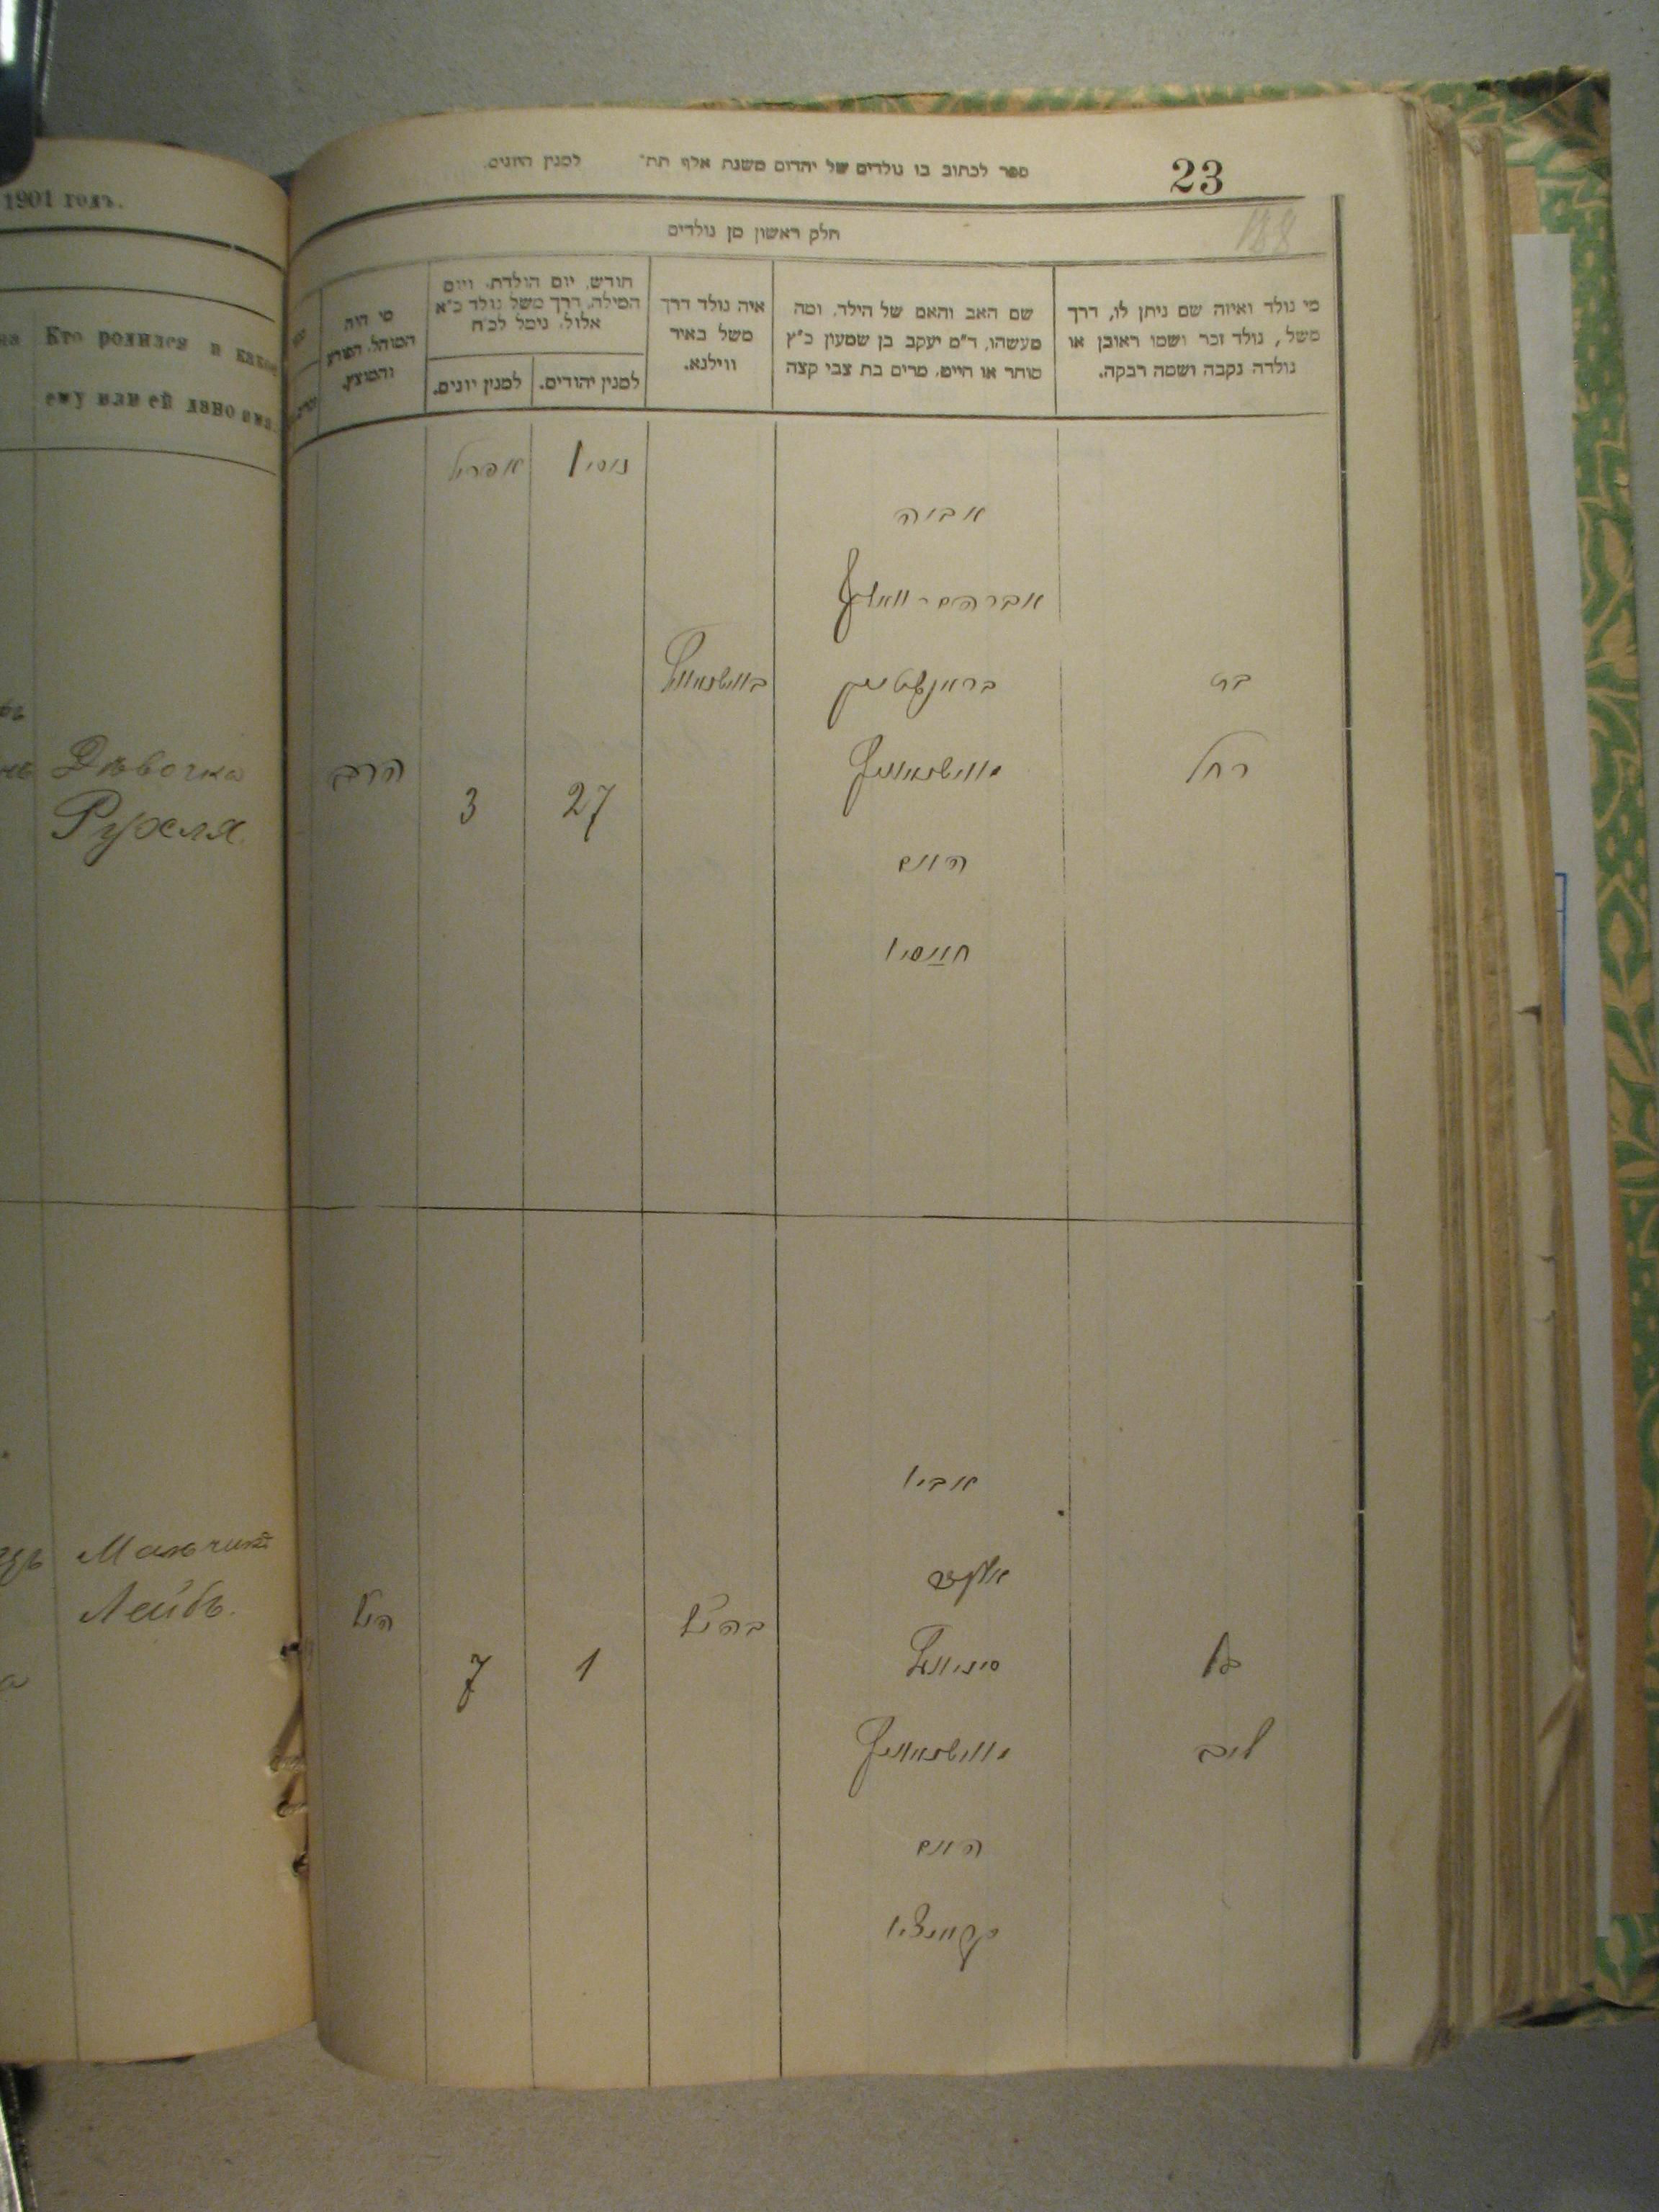 1901 годъ.
Кто родился и какое
ему или ей дано имя.
Дѣвочка
Рухля
Мальчикъ
Лейбъ.
23
188
ספר לכתוב בו נולדים של יהדום משנת אלף תת״ למנין היונים.
חלק ראשון מן נולדים
מי נולד ואיזה שם ניתן לו, דרך
משל, נולד זכר ושמו ראובן או
נולדה נקבה ושמה רבקה.
שם האב והאם של הילד, ומה
מעשהו, ד״מ יעקב בן שמעון כ״ץ
סוחר או חייט, מרים בת צבי קצה
איה נולד דרך
משל באיר
ווילנא.
חודש, יום הולדת, ויום
המילה, דרך משל נולד כ״א
אלול, נימל לכ״ח
למנין יהודים.
למנין יונים.
מי היה
המוהל, הפורע
והמוצץ.
ניסן
אפריל
אביה
אברהם-וואלף
בראנשטיין
בת
רחל
הרב
3
27
האם
אביו
בן
ליב
7
1
האם